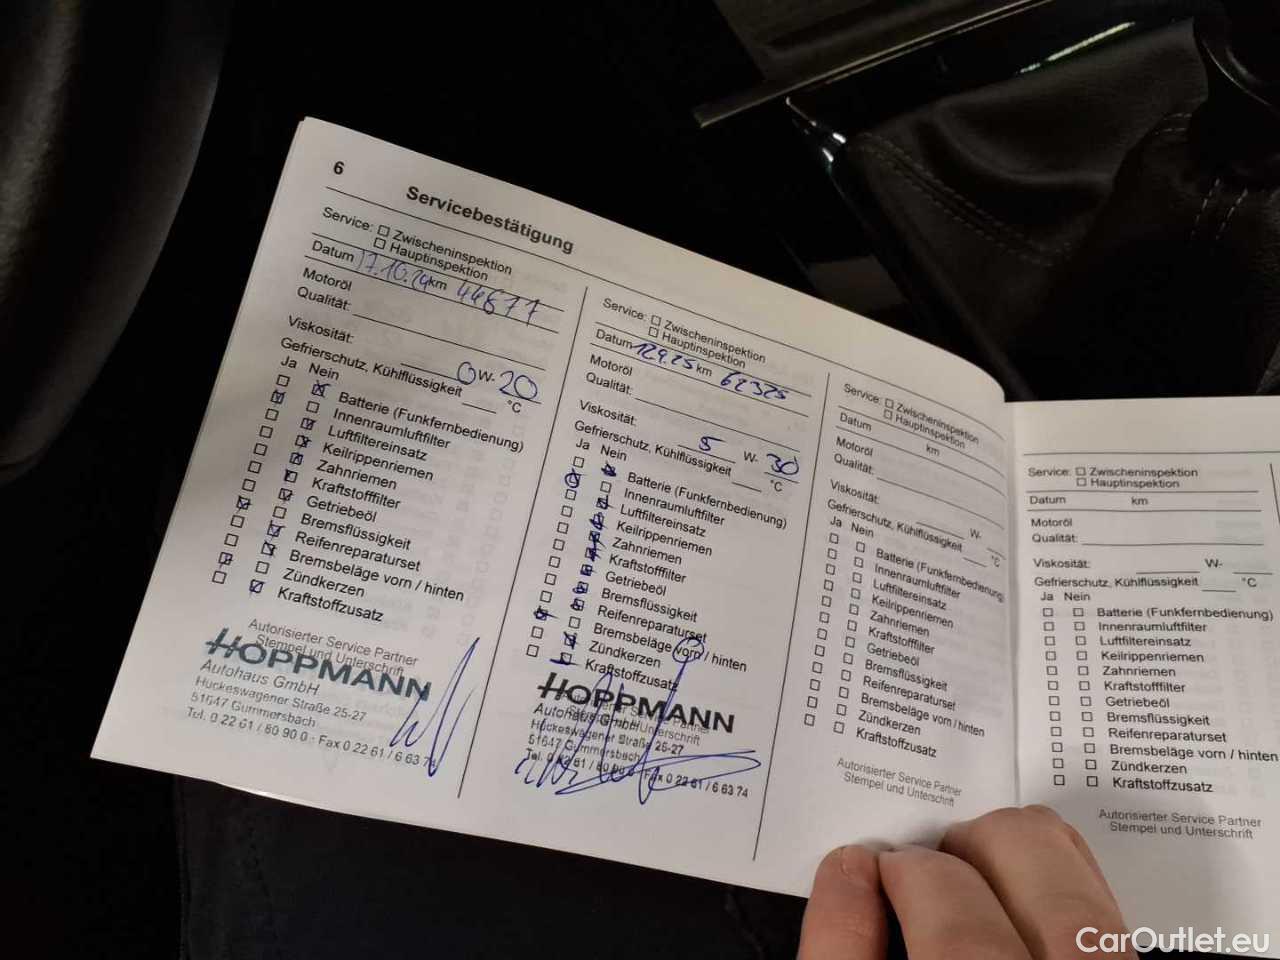 6
Servicebestätigung
Service: Zwischeninspektion
Hauptinspektion
Datum 17.10.24 km 44677
Motoröl
Qualität:
Viskosität: 0 W- 20
Gefrierschutz, Kühlflüssigkeit °C
Ja Nein
Batterie (Funkfernbedienung)
Innenraumluftfilter
Luftfiltereinsatz
Keilrippenriemen
Zahnriemen
Kraftstofffilter
Getriebeöl
Bremsflüssigkeit
Reifenreparaturset
Bremsbeläge vorn / hinten
Zündkerzen
Kraftstoffzusatz
Autorisierter Service Partner
Stempel und Unterschrift
HOPPMANN
Autohaus GmbH
Hückeswagener Straße 25-27
51647 Gummersbach
Tel. 0 22 61 / 80 90 0 · Fax 0 22 61 / 6 63 74
Service: Zwischeninspektion
Hauptinspektion
Datum km 62325
Motoröl
Qualität:
Viskosität: 5 W- 30
Gefrierschutz, Kühlflüssigkeit °C
Ja Nein
Batterie (Funkfernbedienung)
Innenraumluftfilter
Luftfiltereinsatz
Keilrippenriemen
Zahnriemen
Kraftstofffilter
Getriebeöl
Bremsflüssigkeit
Reifenreparaturset
Bremsbeläge vorn / hinten
Zündkerzen
Kraftstoffzusatz
Autorisierter Service Partner
Stempel und Unterschrift
HOPPMANN
Autohaus GmbH
Hückeswagener Straße 25-27
51647 Gummersbach
Tel. 0 22 61 / 80 90 0 · Fax 0 22 61 / 6 63 74
Service: Zwischeninspektion
Hauptinspektion
Datum km
Motoröl
Qualität:
Viskosität: W-
Gefrierschutz, Kühlflüssigkeit °C
Ja Nein
Batterie (Funkfernbedienung)
Innenraumluftfilter
Luftfiltereinsatz
Keilrippenriemen
Zahnriemen
Kraftstofffilter
Getriebeöl
Bremsflüssigkeit
Reifenreparaturset
Bremsbeläge vorn / hinten
Zündkerzen
Kraftstoffzusatz
Autorisierter Service Partner
Stempel und Unterschrift
Service: Zwischeninspektion
Hauptinspektion
Datum km
Motoröl
Qualität:
Viskosität: W-
Gefrierschutz, Kühlflüssigkeit °C
Ja Nein
Batterie (Funkfernbedienung)
Innenraumluftfilter
Luftfiltereinsatz
Keilrippenriemen
Zahnriemen
Kraftstofffilter
Getriebeöl
Bremsflüssigkeit
Reifenreparaturset
Bremsbeläge vorn / hinten
Zündkerzen
Kraftstoffzusatz
Autorisierter Service Partner
Stempel und Unterschrift
CarOutlet.eu